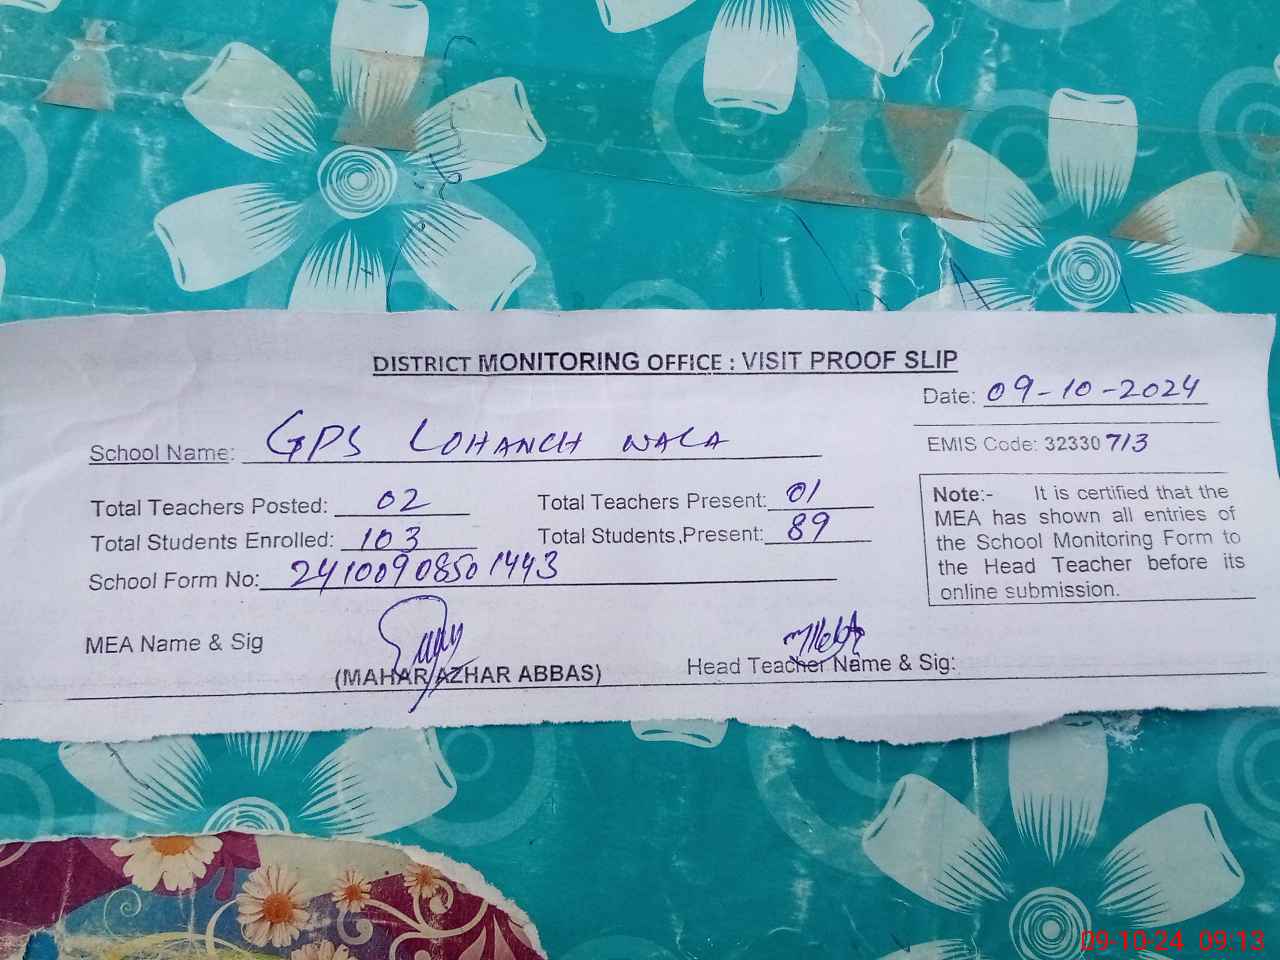 DISTRICT MONITORING OFFICE : VISIT PROOF SLIP
Date: 09-10-2024
School Name: GPS LOHANCH WALA
EMIS Code: 32330713
Total Teachers Posted: 02
Total Teachers Present: 01
Total Students Enrolled: 103
Total Students Present: 89
School Form No: 24100908501443
Note:- It is certified that the
MEA has shown all entries of
the School Monitoring Form to
the Head Teacher before its
online submission.
MEA Name & Sig
(MAHAR AZHAR ABBAS)
Head Teacher Name & Sig:
09-10-24 09:13